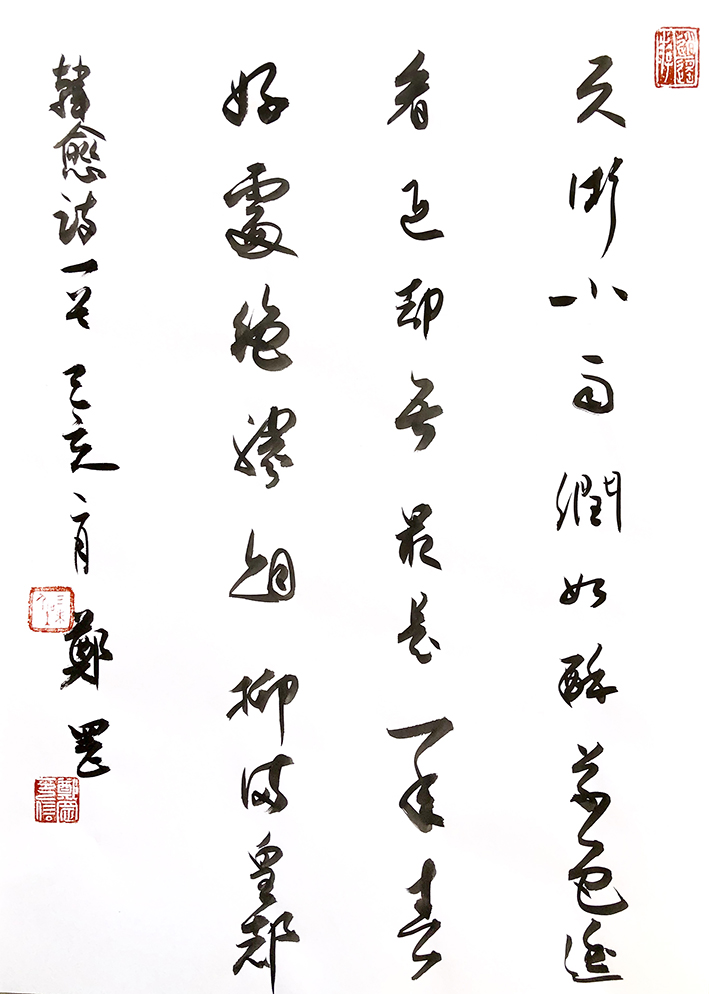 天街小雨潤如酥草色遥
看近却無最是一年春
好處絕勝烟柳滿皇都
韓愈詩一首 己亥 月 鄭罡